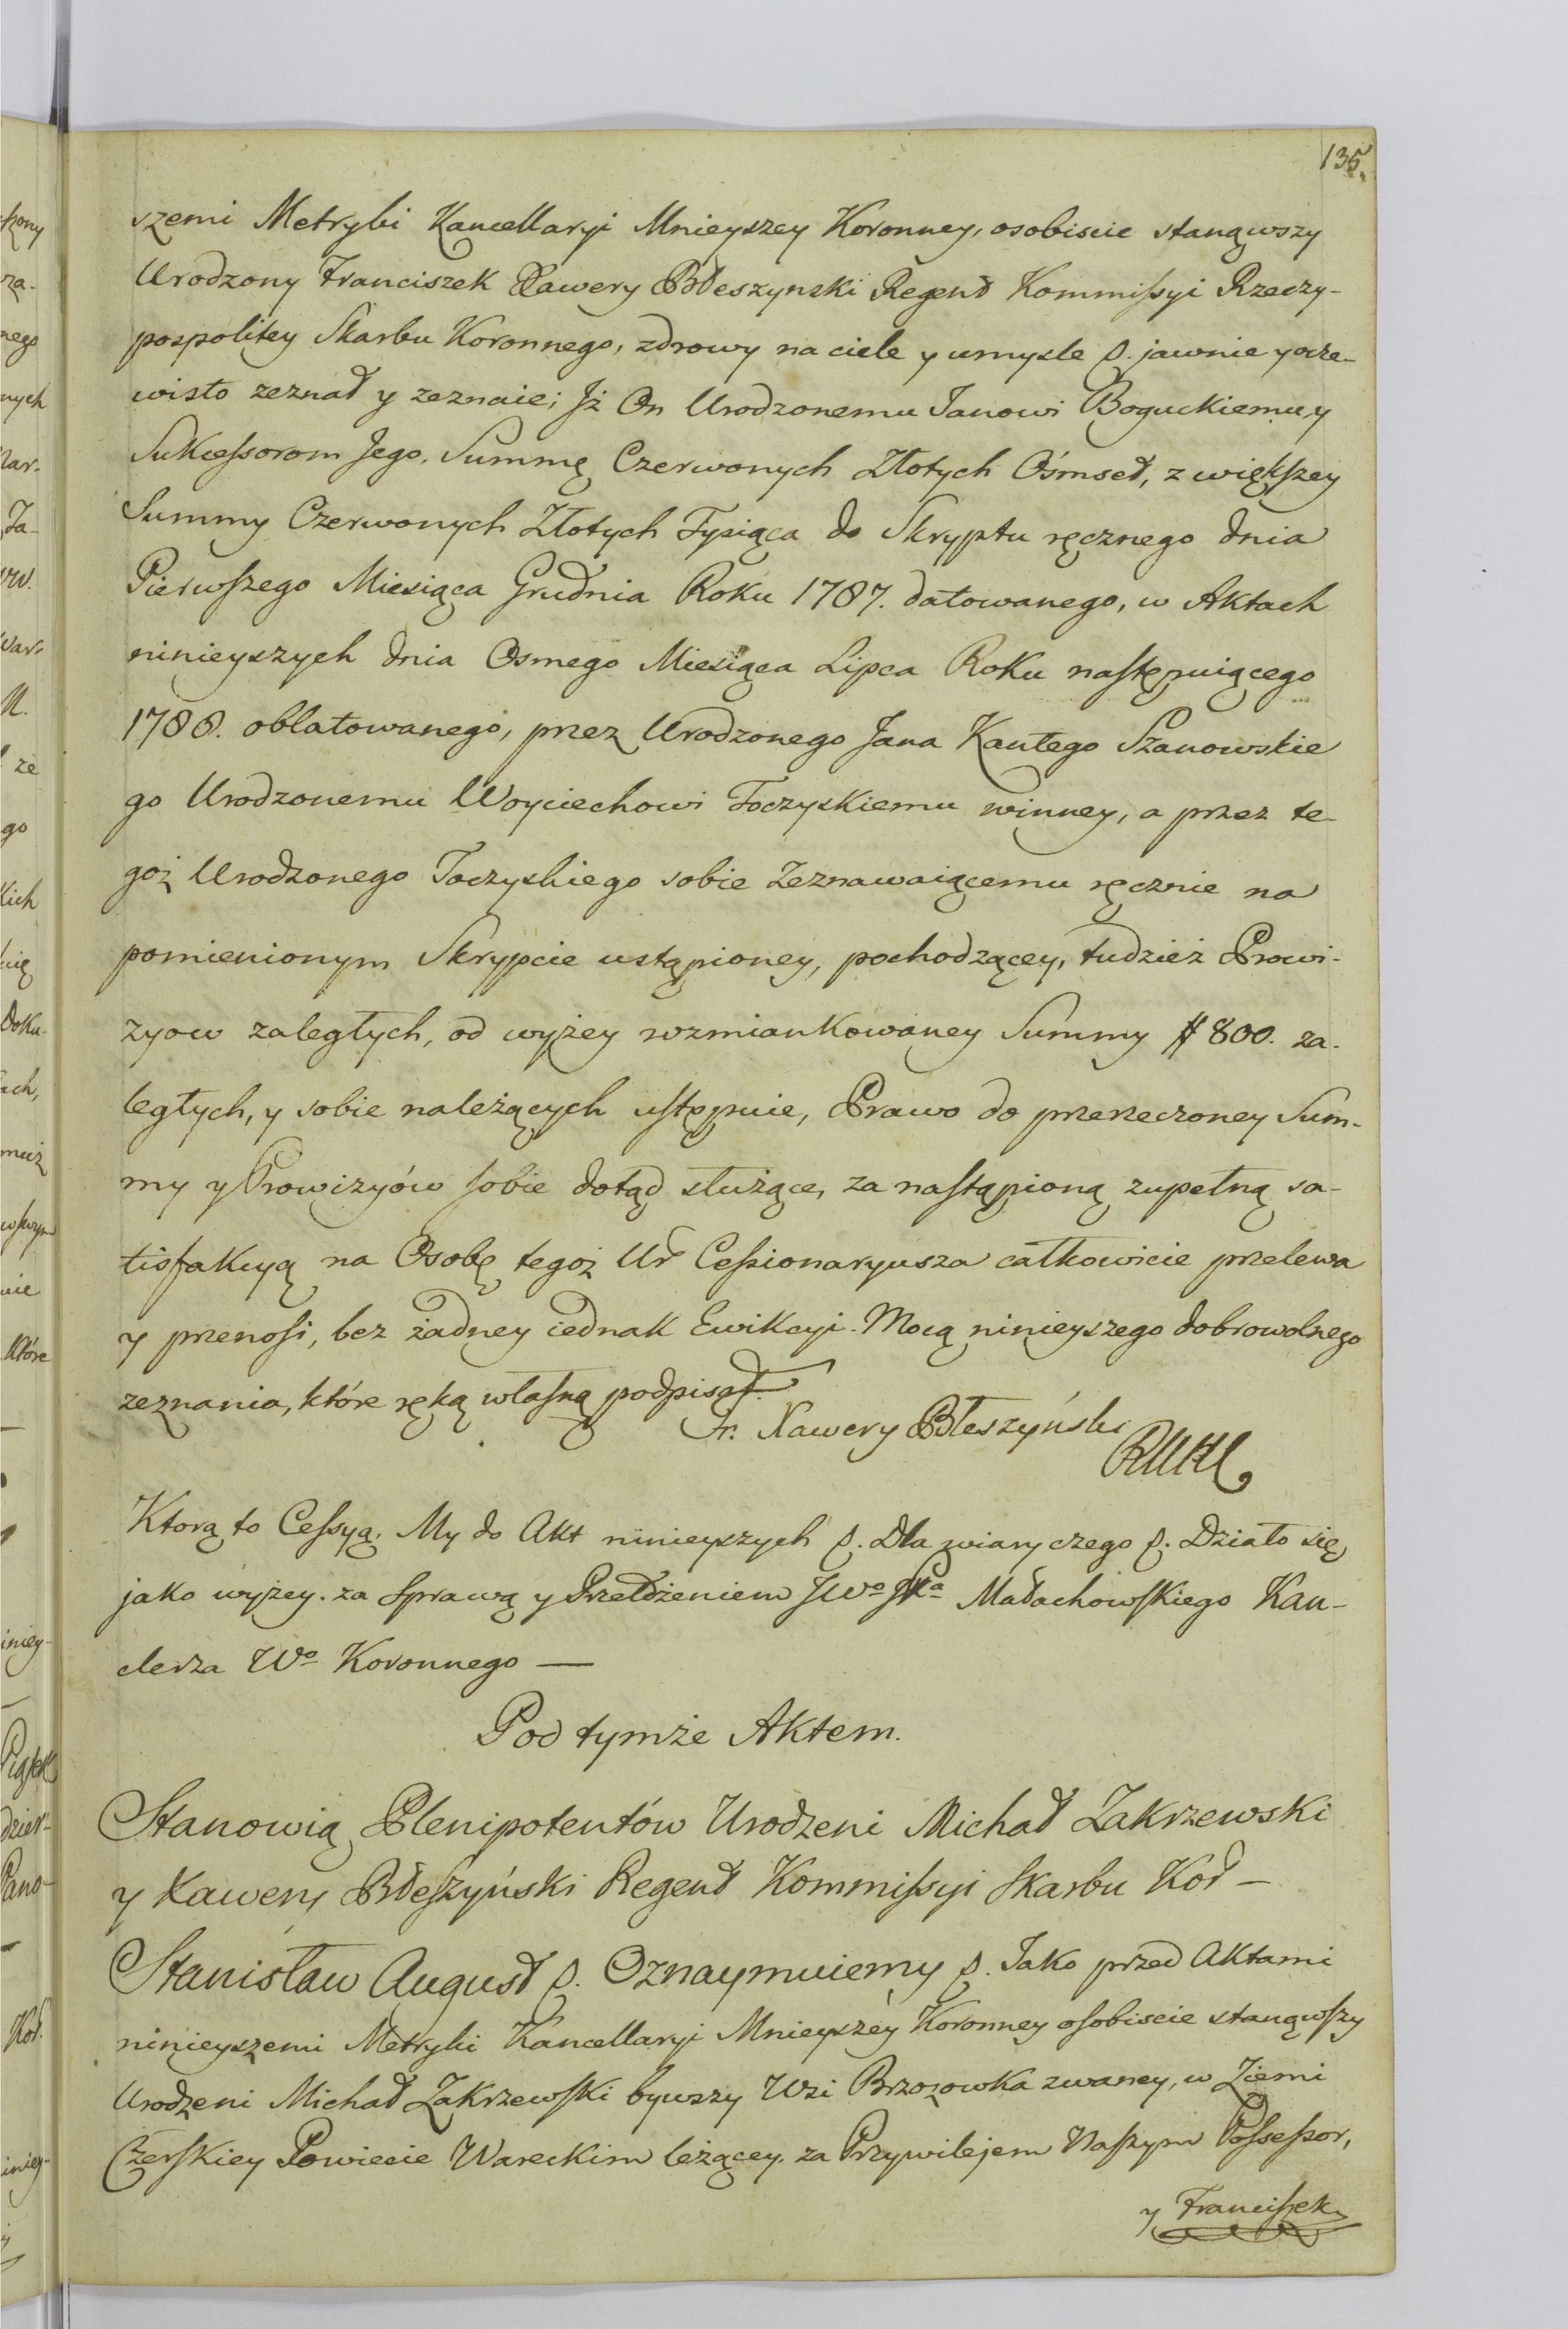 135.
szemi Metryki Kancellaryi Mnieyszey Koronney, osobiscie stanąwszy
Urodzony Franciszek Xawery Błeszynski Regent Kommiſsyi Rzeczy-
pospolitey Skarbu Koronnego, zdrowy na ciele y umysle p. jawnie y ocze-
wisto zeznał y zeznaie; Jż On Urodzonemu Janowi Boguckiemu y
Sukceſsorom Jego, Summę Czerwonych Złotych Ośmset, z większey
Summy Czerwonych Złotych Tysiąca do Skryptu ręcznego dnia
Pierwſzego Miesiąca Grudnia Roku 1787. datowanego, w Aktach
ninieyszych dnia Osmego Miesiąca Lipca Roku naſtępuiącego
1788. oblatowanego, przez Urodzonego Jana Kantego Szanowskie
go Urodzonemu Woyciechowi Toczyskiemu winney, a przez te-
goż Urodzonego Toczyskiego sobie Zeznawaiącemu ręcznie na
pomienionym Skrypcie ustąpioney, pochodzącey, tudzież Prowi-
zyow zaległych, od wyżey wzmiankowaney Summy # 800. za-
ległych, y sobie należących uſtępuie, Prawo do przerzeczoney Sum-
my y Prowizyów ſobie dotąd służące, za naſtąpioną zupełną sa-
tisfakcyą na Osobę tegoż Ur Ceſsionaryusza całkowicie przelewa
y przenoſi, bez żadney iednak Ewikcyi. Mocą ninieyszego dobrowolnego
zeznania, które ręką właſną podpisał.
Fr. Xawery Błeszyński
Ktorą to Ceſsyą, My do Akt ninieyszych p. Dla wiary czego p. Działo się
jako wyżey. za Sprawą y Przełożeniem JWo JPa Małachowſkiego Kan-
clerza Wo Koronnego —
Pod tymże Aktem.
Stanowią Plenipotentów Urodzeni Michał Zakrzewski
y Xawery Błeſzyński Regent Kommiſsyi Skarbu Kor —
Stanisław August p. Oznaymuiemy p. Jako przed Aktami
ninieyszemi Metryki Kancellaryi Mnieyszey Koronney oſobiscie stanąwſzy
Urodzeni Michał Zakrzewſki bywszy Wsi Brzozowka zwaney, w Ziemi
Czerſkiey Powiecie Wareckim leżącey. za Przywilejem Naſzym Poſseſsor,
y Franciſzek